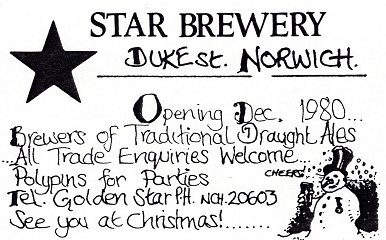 STAR BREWERY
DUKE St. NORWICH.
Opening Dec. 1980...
Brewers of Traditional Draught Ales
...All Trade Enquiries Welcome...
Polypins for Parties
CHEERS!
Tel. Golden Star P.H. NCH. 20603
See you at Christmas!.......